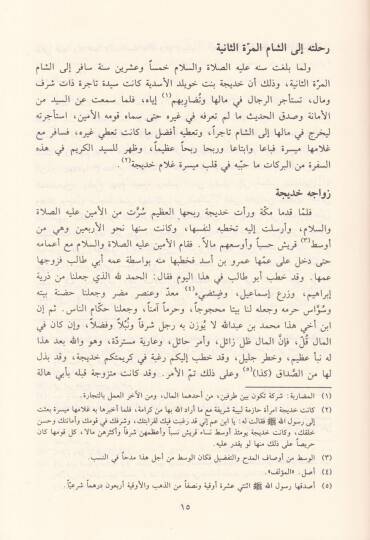 رحلته إلى الشام المرّة الثانية
ولما بلغت سنه عليه الصلاة والسلام خمساً وعشرين سنة سافر إلى الشام
المرّة الثانية، وذلك أن خديجة بنت خويلد الأسدية كانت سيدة تاجرة ذات شرف
ومال، تستأجر الرجال في مالها وتُضاربهم(١) إياه، فلما سمعت عن السيد من
الأمانة وصدق الحديث ما لم تعرفه في غيره حتى سماه قومه الأمين، استأجرته
ليخرج في مالها إلى الشام تاجراً، وتعطيه أفضل ما كانت تعطي غيره، فسافر مع
غلامها ميسرة فباعا وابتاعا وربحا ربحاً عظيماً، وظهر للسيد الكريم في هذه
السفرة من البركات ما حبّبه في قلب ميسرة غلام خديجة(٢).
زواجه خديجة
فلمّا قدما مكّة ورأت خديجة ربحها العظيم سُرَّت من الأمين عليه الصلاة
والسلام، وأرسلت إليه تخطبه لنفسها، وكانت سنها نحو الأربعين وهي من
أوسط(٣) قريش حسباً وأوسعهم مالاً. فقام الأمين عليه الصلاة والسلام مع أعمامه
حتى دخل على عمّها عمرو بن أسد فخطبها منه بواسطة عمه أبي طالب فزوجها
عمها. وقد خطب أبو طالب في هذا اليوم فقال: الحمد لله الذي جعلنا من ذرية
إبراهيم، وزرع إسماعيل، وضِئضيء(٤) معدّ وعنصر مضر وجعلنا حضنة بيته
وسُوَّاس حرمه وجعله لنا بيتا محجوجاً، وحرماً آمناً، وجعلنا حكّام الناس. ثم إن
ابن أخي هذا محمد بن عبدالله لا يُوزن به رجل شرفاً ونُبْلاً وفضلاً، وإن كان في
المال قُلّ، فإنَّ المال ظل زائل، وأمر حائل، وعارية مستردّة، وهو والله بعد هذا
له نبأ عظيم، وخطر جليل، وقد خطب إليكم رغبة في كريمتكم خديجة، وقد بذل
لها من الصَّداق (كذا)(٥) وعلى ذلك تمّ الأمر. وقد كانت متزوجة قبله بأبي هالة
(١) المضاربة: شركة تكون بين طرفين، من أحدهما المال، ومن الآخر العمل بالتجارة.
(٢) كانت خديجة امرأة حازمة لبيبة شريفة مع ما أراد الله بها من كرامة، فلما أخبرها به غلامها ميسرة بعثت
إلى رسول الله ﷺ فقالت له: يا ابن عم إني قد رغبت فيك لقرابتك، وشرفك في قومك وأمانتك وحسن
خلقك، وكانت خديجة يومئذ أوسط نساء قريش نسباً وأعظمهن شرفاً وأكثرهن مالا، كل قومها كان
حريصاً على ذلك منها لو يقدر عليه.
(٣) الوسط من أوصاف المدح والتفضيل فكان الوسط من أجل هذا مدحاً في النسب.
(٤) أصل. «المؤلف».
(٥) أصدقها رسول الله ﷺ اثنتي عشرة أوقية ونصفاً من الذهب والأوقية أربعون درهماً شرعيّاً.
١٥